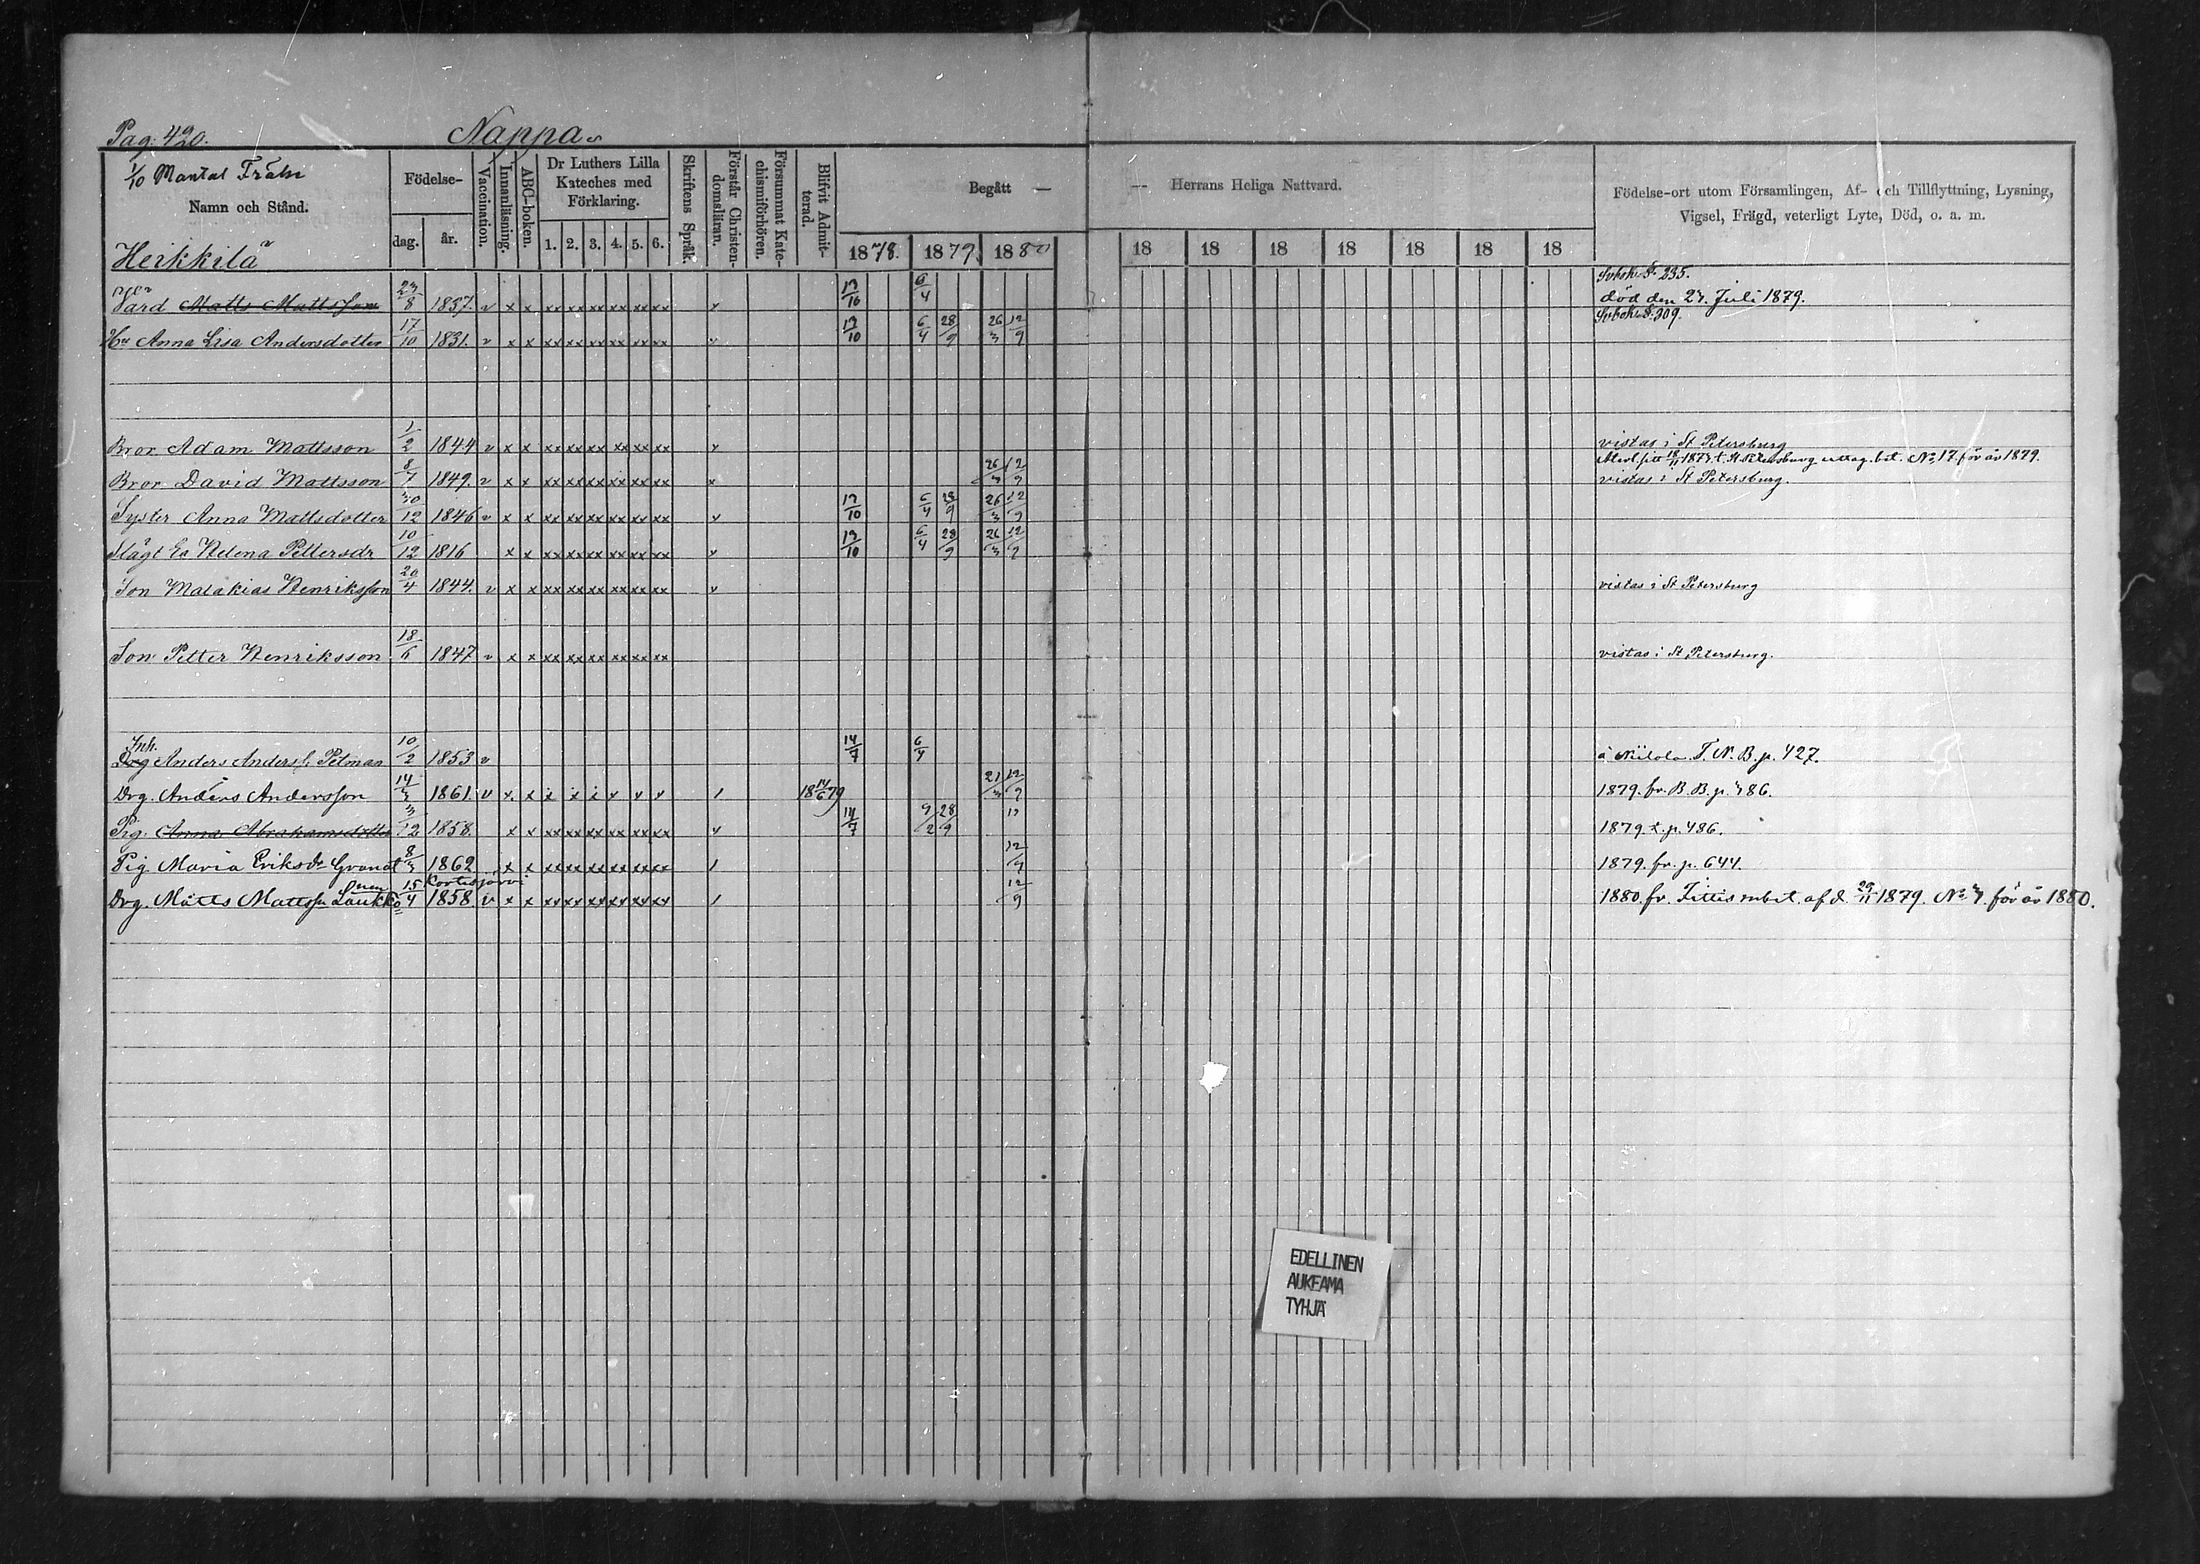 Pag. 420. Nappa
1/10 Mantal Frälse
Namn och Stånd.
Födelse-
dag. år.
Vaccination.
Innanläsning.
ABC-boken.
Dr Luthers Lilla
Kateches med
Förklaring.
1. 2. 3. 4. 5. 6.
Skriftens Språk.
Förstår Christen-
domsläran.
Försummat Kate-
chismiförhören.
Blifvit Admit-
terad.
Begått — — Herrans Heliga Nattvard.
1878. 1879. 1880 18 18 18 18 18 18 18
Födelse-ort utom Församlingen, Af- och Tillflyttning, Lysning,
Vigsel, Frägd, veterligt Lyte, Död, o. a. m.
Heikkilä
Matts Mattsson 23/8 1837. v x x xx xx xx xx xx xx v 13/10 6/4 död den 27. Juli 1879.
Hu Anna Lisa Andersdotter 17/10 1831. v x x xx xx xx xx xx xx v 13/10 6/4 28/9 26/3 12/9
Bror Adam Mattsson 1/2 1844 v x x xx xx xx xx xx xx v vistas i St Petersburg
Bror David Mattsson 8/7 1849. v x x xx xx xx xx xx xx x 26/3 12/9 vistas i St Petersburg.
Syster Anna Mattsdotter 30/12 1846 v x x xx xx xx xx xx xx v 13/10 6/4 28/9 26/3 12/9
Helena Pettersdr 10/12 1816 x x xx xx xx xx xx xx v 13/10 6/4 28/9 26/3 12/9
Son Malakias Henriksson 20/4 1844. v x x xx xx xx xx xx xx v vistas i St Petersburg
Son Petter Henriksson 18/6 1847 v x x xx xx xx xx xx xx vistas i St Petersburg.
Inh.
Drg Anders Anders. Petman 10/2 1853 v 14/7 6/4 å Niilola T. N. B. p. 427.
Drg. Anders Andersson 14/3 1861. v x x 18 14/6 79 21/3 12/9 1879. fr. B. B. p. 486.
Pig. Anna Abrahamsdotter 3/12 1858. x x xx xx xx xx xx xx v 14/7 28/9 1879. t. p. 486.
Pig. Maria Eriksdr 8/3 1862 x x xx xx xx xx xx xx 12/9 1879. fr. p. 644.
Kortesjärvi
Drg. Matts Mattss. 15/4 1858. v x x xx xx xx xx xx xx 12/9 1880. fr. af d. 29/11 1879. No för år 1880.
EDELLINEN
AUKEAMA
TYHJÄ